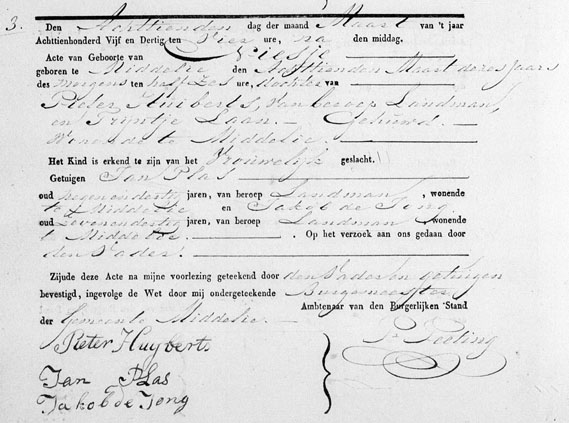 3. Den Achttienden dag der maand Maart van 't jaar
Achttienhonderd Vijf en Dertig, ten Vier ure, na den middag.
Acte van Geboorte van Sijtje
geboren te Middelie den Achttienden Maart dezes jaars
des morgens ten half Zes ure, dochter van
Pieter Huiberts, van beroep Landman,
en Trijntje Laan. Gehuwd.
Wonende te Middelie.
Het Kind is erkend te zijn van het Vrouwelijk geslacht.
Getuigen Jan Plas
oud negenendertig jaren, van beroep Landman, wonende
te Middelie en Jakob de Jong
oud Zevenendertig jaren, van beroep Landman, wonende
te Middelie. Op het verzoek aan ons gedaan door
den Vader.
Zijnde deze Acte na mijne voorlezing geteekend door den Vader en getuigen
bevestigd, ingevolge de Wet door mij ondergeteekende Burgemeester
Ambtenaar van den Burgerlijken Stand
der Gemeente Middelie.
Pieter Huyberts
P. Peeting
Jan Plas
Jakob de Jong